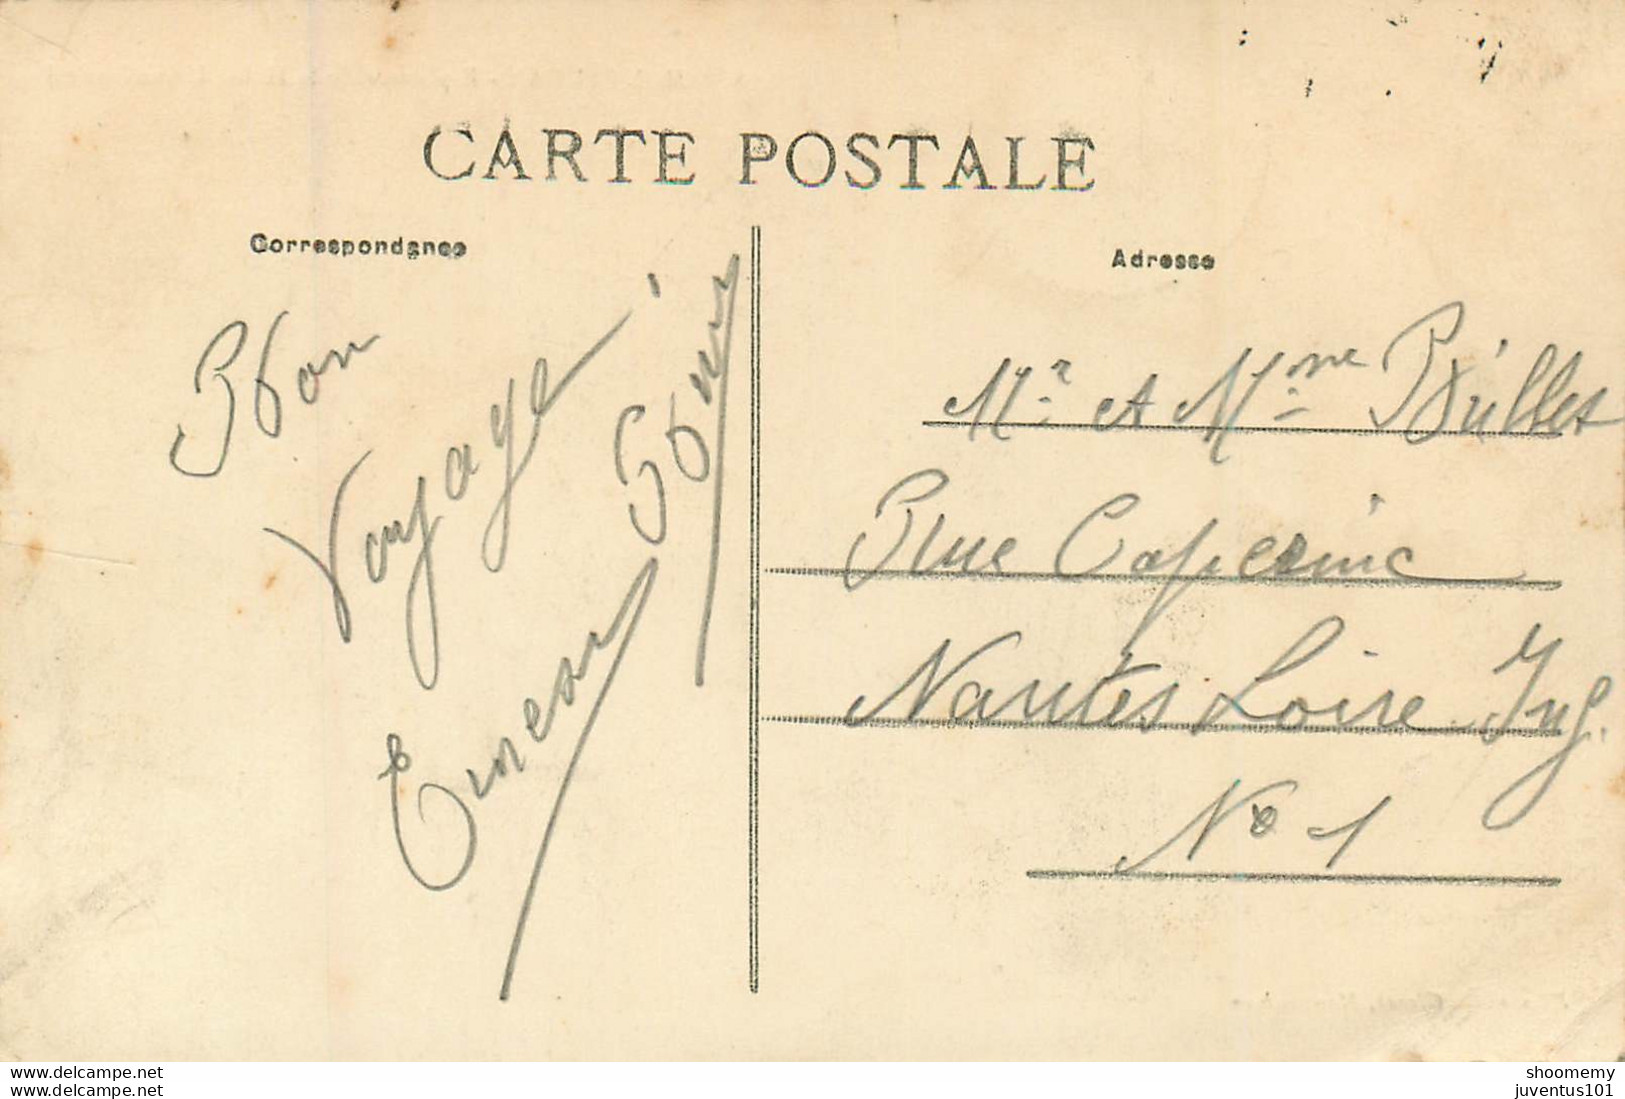 CARTE POSTALE
Correspondance
Adresse
Bon
Voyage
Mr et Mme
Rue Copernic
Nantes Loire Inf.
No 1
www.delcampe.net
www.delcampe.net
shoomemy
juventus101